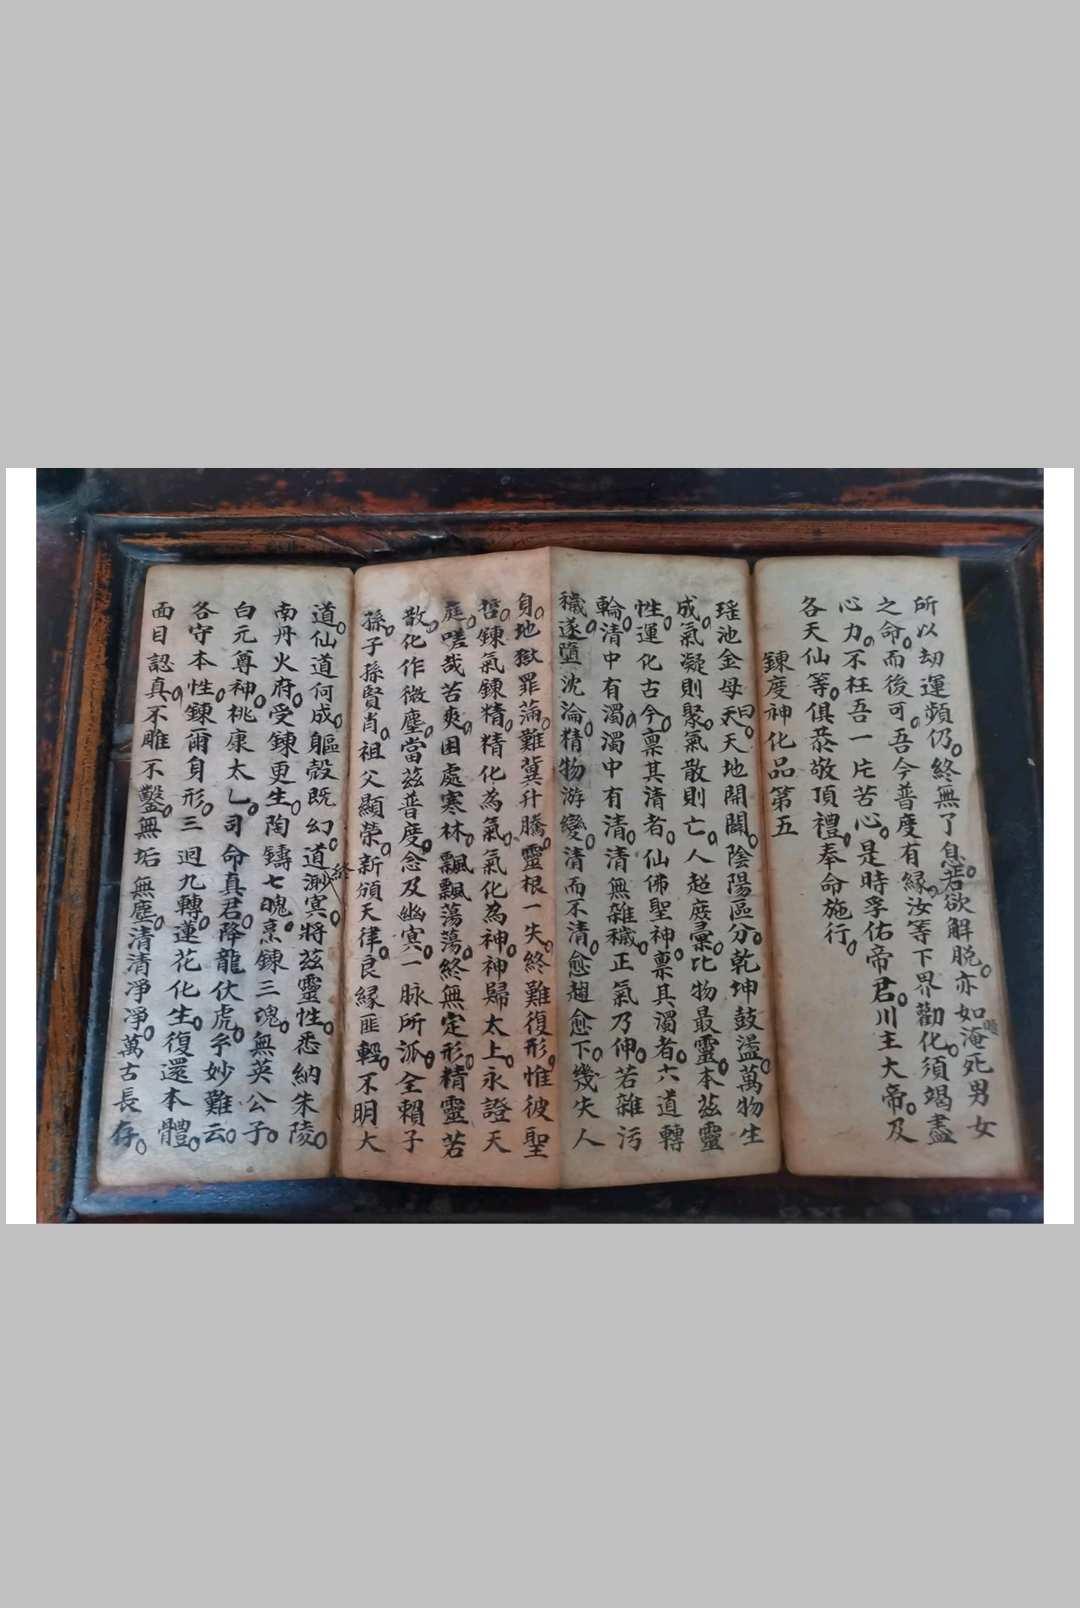 所以劫運頻仍。終無了息。若欲解脱。亦如淹死男女
之命。而後可。吾今普度有緣。汝等下界勸化。須竭盡
心力。不枉吾一片苦心。是時孚佑帝君。川主大帝。及
各天仙等。俱恭敬頂禮。奉命施行。
鍊度神化品第五
瑤池金母曰。天天地開闢。陰陽區分。乾坤鼓盪。萬物生
成。氣凝則聚。氣散則亡。人超庶彙。比物最靈。本茲靈
性。運化古今。稟其清者。仙佛聖神。稟其濁者。六道轉
輪。清中有濁。濁中有清。清無雜穢。正氣乃伸。若雜污
穢。遂墮沈淪。精物游變。清而不清。愈趨愈下。幾失人
身。地獄罪滿。難冀升騰。靈根一失。終難復形。惟彼聖
哲。鍊氣鍊精。精化為氣。氣化為神。神歸太上。永證天
庭。嗟哉苦爽。困處寒林。飄飄蕩蕩。終無定形。精靈若
散。化作微塵。當茲普度。念及幽冥。一脉所派。全賴子
孫。子孫賢肖。祖父顯榮。新頒天律。良緣匪輕。不明大
道。仙道何成。軀殼既幻。道終渺冥。將茲靈性。悉納朱陵。
南丹火府。受鍊更生。陶鑄七魄。烹鍊三魂。無英公子。
白元尊神。桃康太乚。司命真君。降龍伏虎。乎妙難云。
各守本性。鍊爾身形。三迴九轉。蓮花化生。復還本體。
面目認真。不雕不鑿。無垢無塵。清清凈凈。萬古長存。